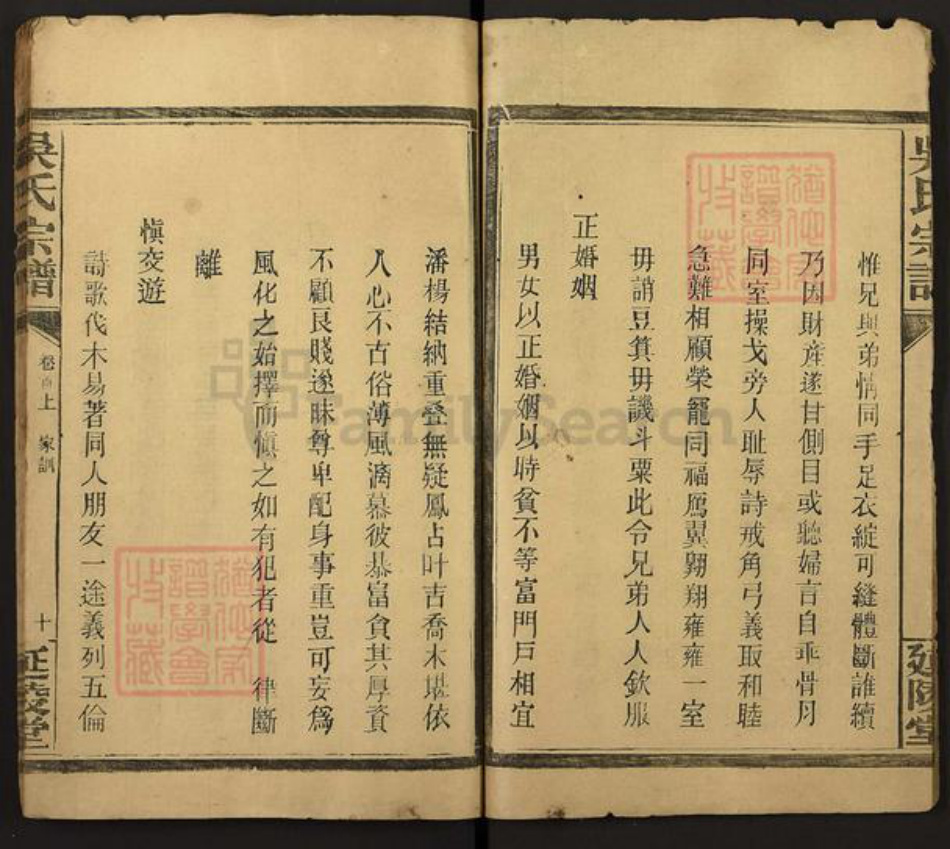 惟兄與弟情同手足衣綻可縫體斷誰續
乃因財產遂甘側目或聽婦言自乖骨月
同室操戈旁人耻辱詩戒角弓義取和睦
急難相顧榮寵同福鴈翼翺翔雍雍一室
毋誚豆箕毋譏斗粟此令兄弟人人欽服
正婚姻
男女以正婚姻以時貧不等富門戶相宜
潘楊結納重叠無疑鳳占叶吉喬木堪依
人心不古俗薄風漓慕彼恭富貪其厚資
不顧良賤遂昧尊卑配身事重豈可妄爲
風化之始擇而愼之如有犯者從 律斷
離
愼交遊
詩歌伐木易著同人朋友一途義列五倫
吳氏宗譜
卷首上 家訓
十
延陵堂
吳氏宗譜
延陵堂
FamilySearch